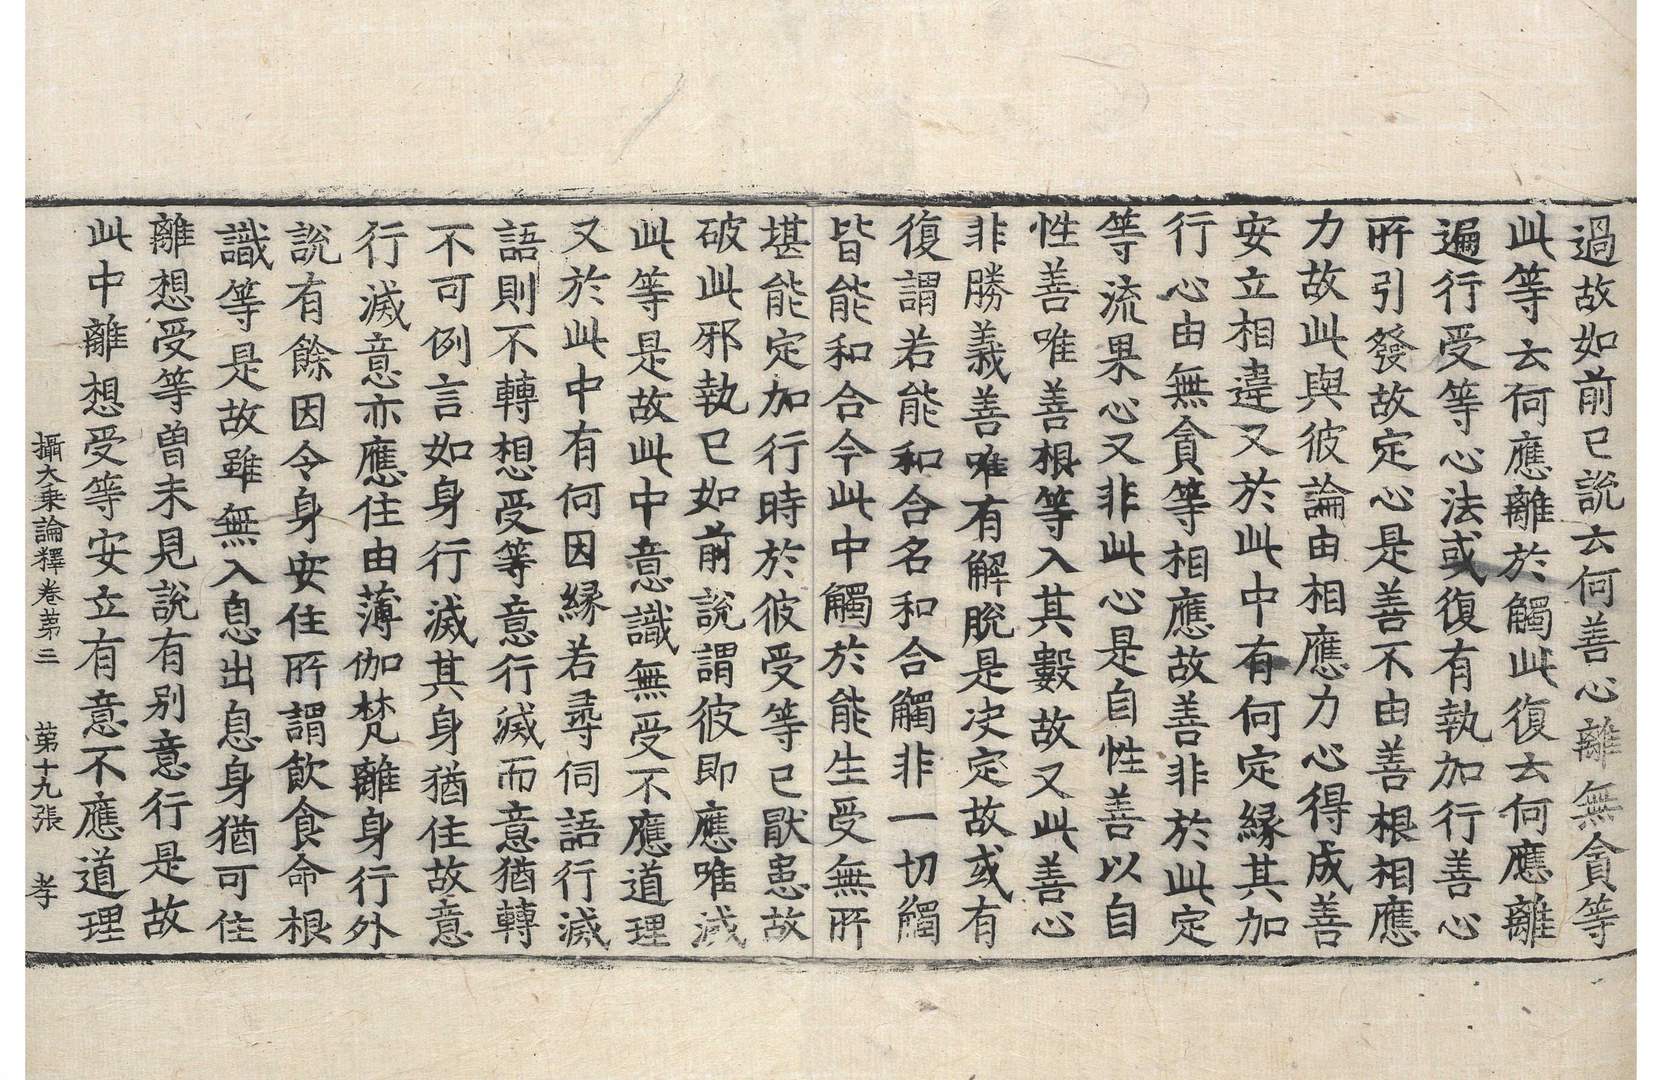 過故如前已說云何善心離無貪等
此等云何應離於觸此復云何應離
遍行受等心法或復有執加行善心
所引發故定心是善不由善根相應
力故此與彼論由相應力心得成善
安立相違又於此中有何定緣其加
行心由無貪等相應故善非於此定
等流果心又非此心是自性善以自
性善唯善根等入其數故又此善心
非勝義善唯有解脫是决定故或有
復謂若能和合名和合觸非一切觸
皆能和合今此中觸於能生受無所
堪能定加行時於彼受等已猒患故
破此邪執已如前說謂彼即應唯滅
此等是故此中意識無受不應道理
又於此中有何因緣若尋伺語行滅
語則不轉想受等意行滅而意猶轉
不可例言如身行滅其身猶住故意
行滅意亦應住由薄伽梵離身行外
說有餘因令身安住所謂飲食命根
識等是故雖無入息出息身猶可住
離想受等曾未見說有別意行是故
此中離想受等安立有意不應道理
攝大乘論釋卷第三　第十九張　孝